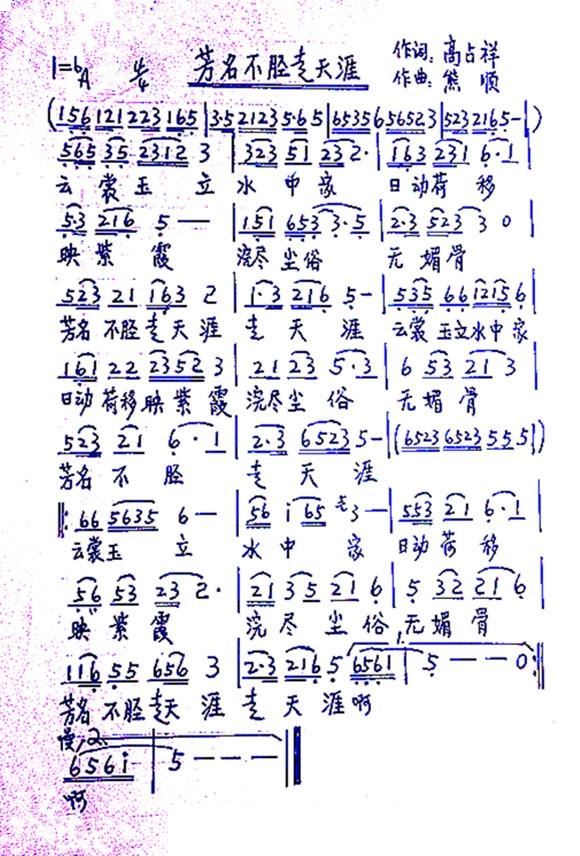 芳名不胫走天涯
作词:高占祥
作曲:熊 顺
1=bA 4/4
(156 1212 223 165 | 3·5 2123 5·6 5 | 6535 6 5652 3 | 523 2165 - | )
565 35 2312 3 | 323 51 232· | 163 231 6·1 |
云裳玉 立 水中家 日动荷移
5·3 216 5 - - | 151 653 3·5 | 2·3 523 3 0
映紫霞 浣尽尘俗 无媚骨
523 21 163 2 | 1·3 216 5 - | 535 66 1215 6 |
芳名不胫走天涯 走天涯 云裳玉立水中家
161 22 2352 3 | 21 23 5·3 | 6 53 21 3 |
日动荷移映紫霞 浣尽尘俗 无媚骨
523 21 6·1 | 2·3 6523 5 - | (6523 6523 55 5 | )
芳名不胫 走天涯
‖: 66 5635 6 - | 56 i 65 3 - | 553 21 6·1 |
云裳玉 立 水中 家 日动荷移
56 53 23 2· | 21 35 21 6 | 5 32 21 6 |
映紫霞 浣尽尘俗 无媚骨
1.
116 55 656 3 | 2·3 216 5 6561 | 5 - - 0 :‖
芳名不胫走天涯 走天涯 啊
慢 2.
656i | 5 - - - ‖
啊